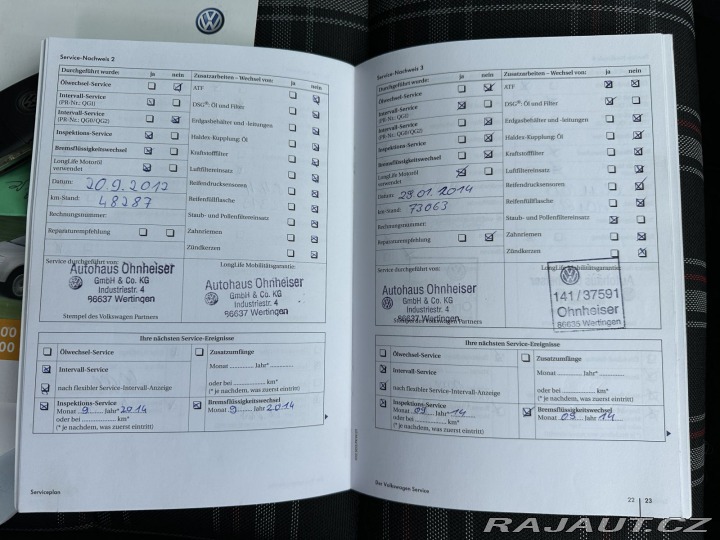 Service-Nachweis 2
Durchgeführt wurde: ja nein
Ölwechsel-Service
Intervall-Service
(PR-Nr.: QG1)
Intervall-Service
(PR-Nr.: QG0/QG2)
Inspektions-Service
Bremsflüssigkeitswechsel
LongLife Motoröl
verwendet
Datum: 20.9.2012
km-Stand: 48287
Rechnungsnummer:
Reparaturempfehlung
Zusatzarbeiten – Wechsel von: ja nein
ATF
DSG®: Öl und Filter
Erdgasbehälter und -leitungen
Haldex-Kupplung: Öl
Kraftstofffilter
Luftfiltereinsatz
Reifendrucksensoren
Reifenfüllflasche
Staub- und Pollenfiltereinsatz
Zahnriemen
Zündkerzen
Service durchgeführt von:
LongLife Mobilitätsgarantie:
Autohaus Ohnheiser
GmbH & Co. KG
Industriestr. 4
86637 Wertingen
Autohaus Ohnheiser
GmbH & Co. KG
Industriestr. 4
86637 Wertingen
Stempel des Volkswagen Partners
Ihre nächsten Service-Ereignisse
Ölwechsel-Service
Intervall-Service
nach flexibler Service-Intervall-Anzeige
Zusatzumfänge
Monat .............. Jahr*..............
oder bei .............. km*
(* je nachdem, was zuerst eintritt)
Inspektions-Service
Monat 9 Jahr 2014
oder bei .............. km*
(* je nachdem, was zuerst eintritt)
Bremsflüssigkeitswechsel
Monat 9 Jahr 2014
Serviceplan
Service-Nachweis 3
Durchgeführt wurde: ja nein
Ölwechsel-Service
Intervall-Service
(PR-Nr.: QG1)
Intervall-Service
(PR-Nr.: QG0/QG2)
Inspektions-Service
Bremsflüssigkeitswechsel
LongLife Motoröl
verwendet
Datum: 29.01.2014
km-Stand: 73063
Rechnungsnummer:
Reparaturempfehlung
Zusatzarbeiten – Wechsel von: ja nein
ATF
DSG®: Öl und Filter
Erdgasbehälter und -leitungen
Haldex-Kupplung: Öl
Kraftstofffilter
Luftfiltereinsatz
Reifendrucksensoren
Reifenfüllflasche
Staub- und Pollenfiltereinsatz
Zahnriemen
Zündkerzen
Service durchgeführt von:
LongLife Mobilitätsgarantie:
Autohaus Ohnheiser
GmbH & Co. KG
Industriestr. 4
86637 Wertingen
Stempel des Volkswagen Partners
141/37591
Ohnheiser
86635 Wertingen
Ihre nächsten Service-Ereignisse
Ölwechsel-Service
Intervall-Service
nach flexibler Service-Intervall-Anzeige
Zusatzumfänge
Monat .............. Jahr*..............
oder bei .............. km*
(* je nachdem, was zuerst eintritt)
Inspektions-Service
Monat 09 14
oder bei .............. km*
(* je nachdem, was zuerst eintritt)
Bremsflüssigkeitswechsel
Monat 09 Jahr 14
Der Volkswagen Service
22 | 23
00
00
RAJAUT.CZ